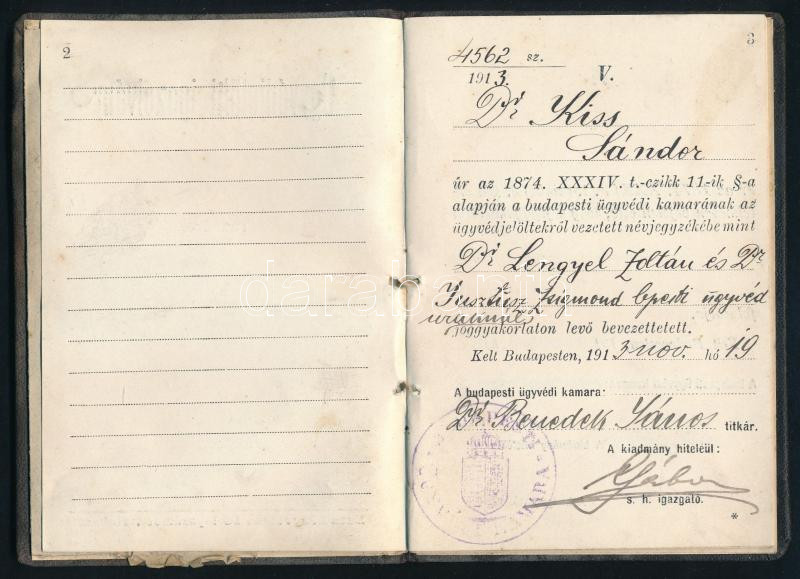 2
3
4562 sz.
1913. V.
Dr Kiss
Sándor
úr az 1874. XXXIV. t.-czikk 11-ik §-a
alapján a budapesti ügyvédi kamarának az
ügyvédjelöltekről vezetett névjegyzékébe mint
Dr Lengyel Zoltán és Dr
Jusztusz Zsigmond bpesti ügyvéd
uraknál
joggyakorlaton levő bevezettetett.
Kelt Budapesten, 1913 nov. hó 19
A budapesti ügyvédi kamara:
Dr. Benedek János titkár.
A kiadmány hiteléül:
Gábor
s. h. igazgató.
*
darabanth